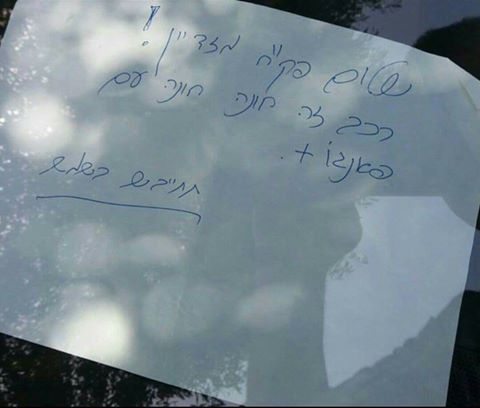 שלום פקח מזדיין!
רכב זה חונה חונה עם
פאנגו +.
תתייבש בשמש